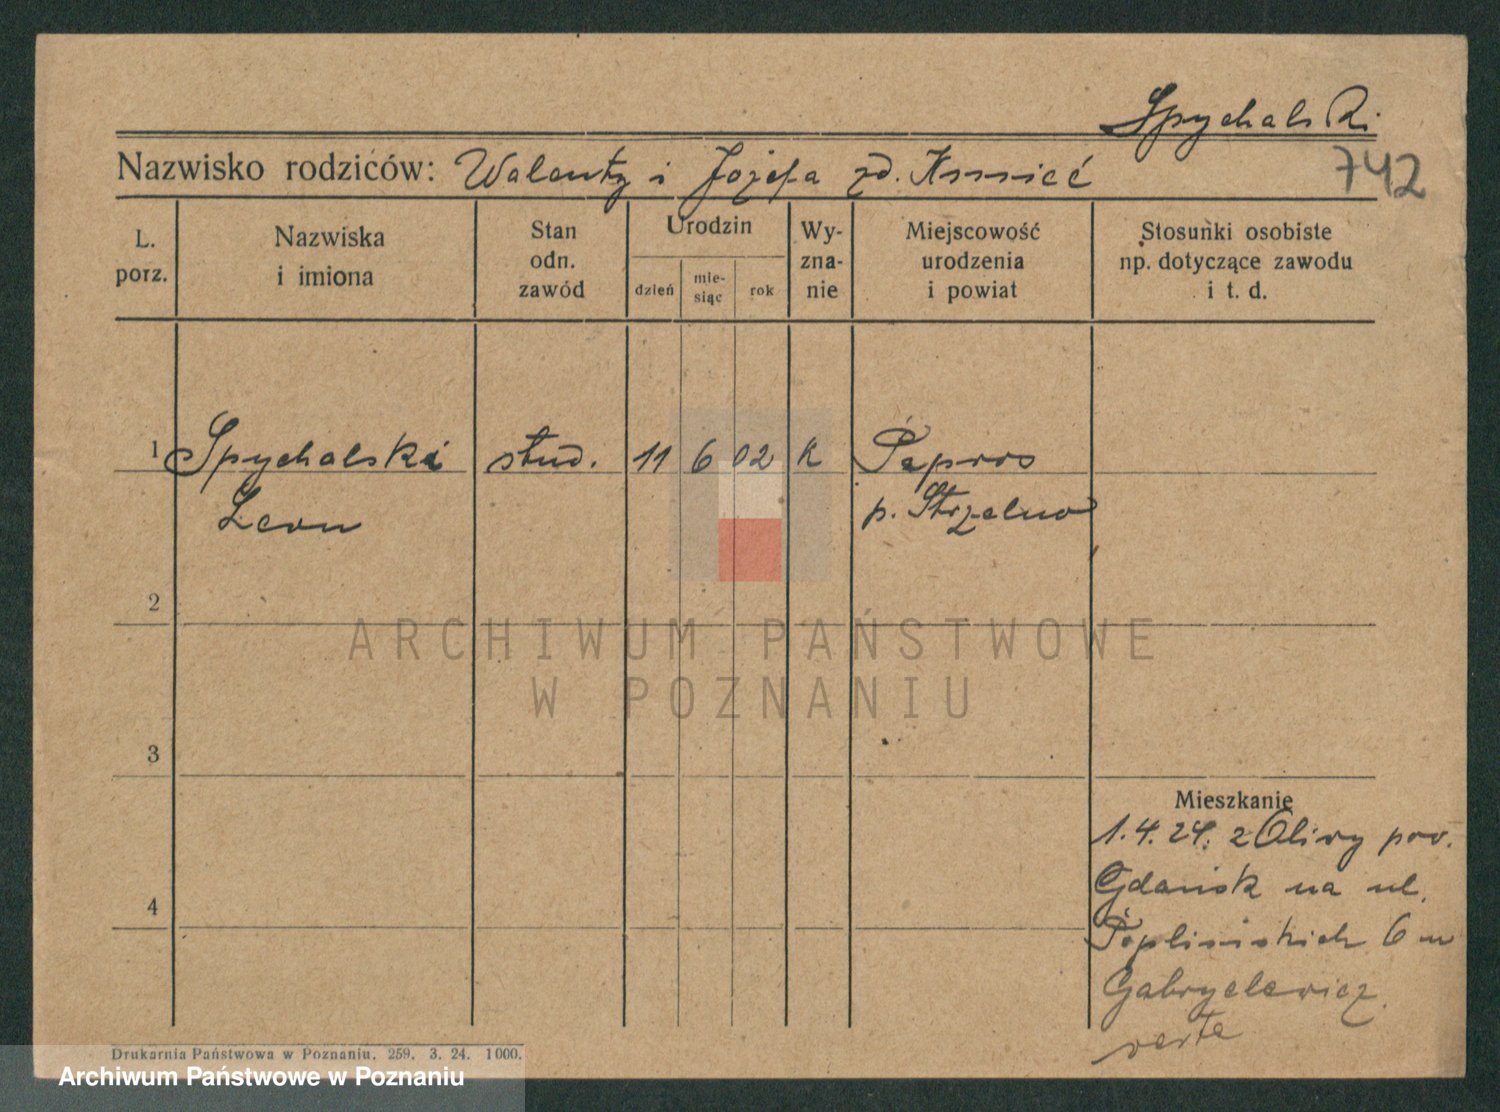 Spychalski
Nazwisko rodziców: Walenty i Józefa zd. Kmieć
742
L. porz.
Nazwiska i imiona
Stan odn. zawód
Urodzin
dzień
mie-siąc
rok
Wy-zna-nie
Miejscowość urodzenia i powiat
Stosunki osobiste np. dotyczące zawodu i t. d.
1 Spychalski stud. 11 6 02 K Papros
Leon p. Strzelno
2
ARCHIWUM PAŃSTWOWE
W POZNANIU
3
Mieszkanie
1.4.24. z Oliwy pow.
Gdańsk na ul.
4
6 u
Gabryelewicz
verte
Drukarnia Państwowa w Poznaniu. 259. 3. 24. 1000.
Archiwum Państwowe w Poznaniu